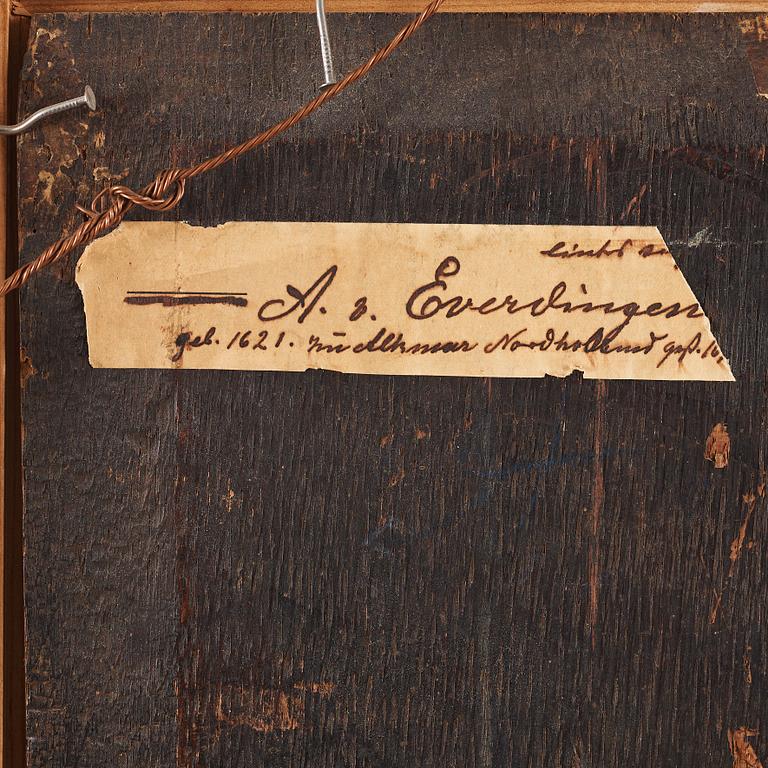 links
A. v. Everdingen
geb. 1621. zu Alkmar Nordholland gest. 16